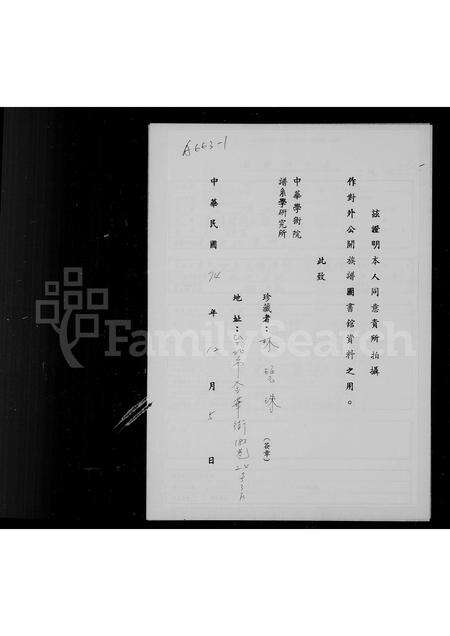 A663-1
茲證明本人同意貴所拍攝
作對外公開族譜圖書館資料之用。
此致
中華學術院
譜系學研究所
珍藏者：
(簽章)
地址：台北市金華街
中華民國74年12月5日
FamilySearch